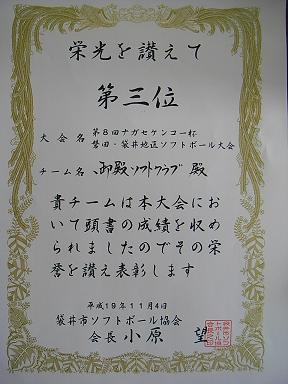 栄光を讃えて
第三位
大会名 第8回ナガセケンコー杯
磐田・袋井地区ソフトボール大会
チーム名 御殿ソフトクラブ 殿
貴チームは本大会にお
いて頭書の成績を収め
られましたのでその栄
誉を讃え表彰します
平成19年11月4日
袋井市ソフトボール協会
会長 小原 望